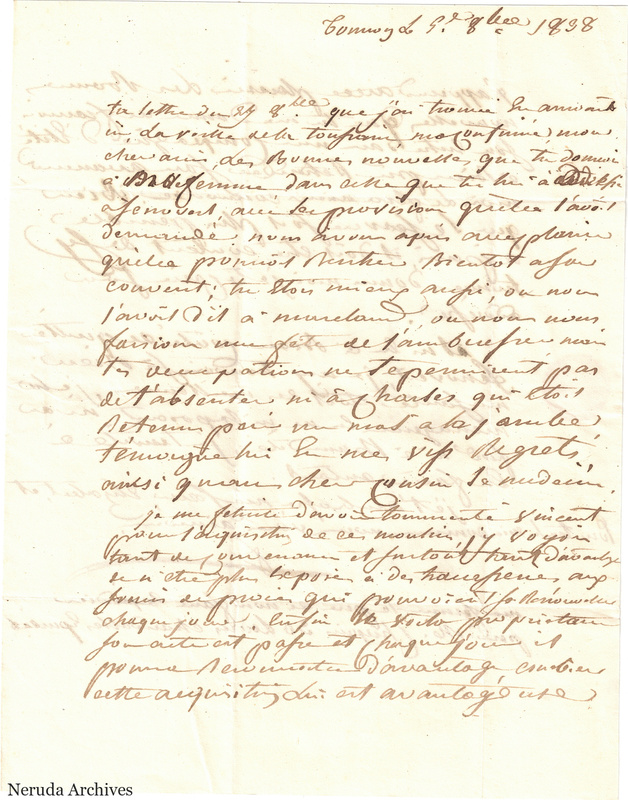 Le 5 8bre 1838
ta lettre du 29 8bre que j'ai trouvée en arrivant
ici la veille de la toussaint me confirme mon
cher ami, les bonnes nouvelles que tu donnois
à ma femme dans celle que tu lui a
à avec les provisions qu'elle t'avoit
demandé. nous avons apris avec plaisir
qu'elle pourroit Rentrer Bientot a son
couvent; tu étois mieux aussi, on nous
l'avoit dit à ou nous nous
faisions une fête de t'embrasser mais
tes occupations ne te permirent pas
de t'absenter ni à Charles qui étoit
Retenu par un mal a la jambe,
témoigne lui En mes vifs Regrets
ainsi qu'au cher Cousin le medecin.
je me felicite d'avoir tourmenté vincent
pour l'acquisition de ces moulins, j'y voyois
tant de et surtout tant d'avantage
de n'etre plus Exposé à des aux
de procès qui pouvoient se Renouveller
chaque jour. Enfin le voila propriétaire
son acte est passé et chaque jour il
pourra d'avantage combien
cette acquisition lui est avantageuse
Neruda Archives